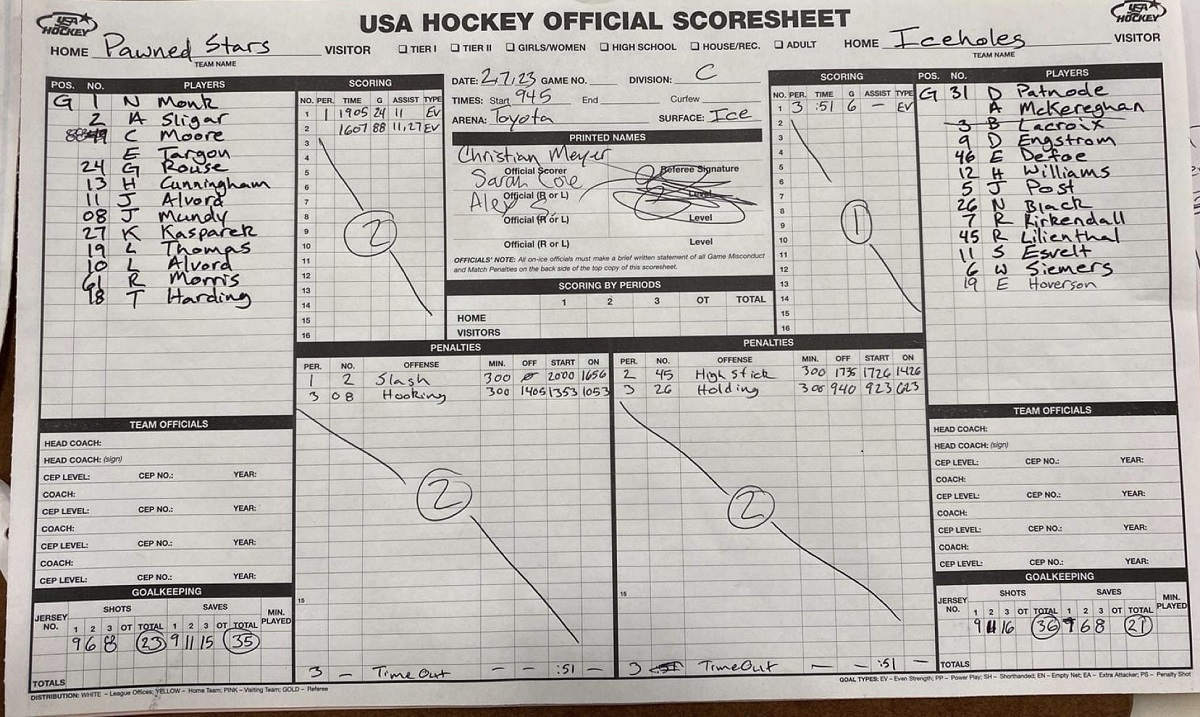 USA HOCKEY OFFICIAL SCORESHEET
USA HOCKEY
USA HOCKEY
HOME Pawned Stars VISITOR ☐ TIER I ☐ TIER II ☐ GIRLS/WOMEN ☐ HIGH SCHOOL ☐ HOUSE/REC. ☐ ADULT HOME Iceholes VISITOR
TEAM NAME TEAM NAME
POS. NO. PLAYERS
G 1 N Monk
2 A Sligar
88 C Moore
E Targon
24 G Rouse
13 H Cunningham
11 J Alvord
08 J Mundy
27 K Kasparek
19 L Thomas
10 L Alvord
61 R Morris
18 T Harding
SCORING
NO. PER. TIME G ASSIST TYPE
1 1 1905 24 11 EV
2 1607 88 11,27 EV
3
4
5
6
7
8
9
10
11
12
13
14
15
16
2
DATE: 2.7.23 GAME NO. DIVISION: C
TIMES: Start 945 End Curfew
ARENA: Toyota SURFACE: Ice
PRINTED NAMES
Christian Meyer
Official Scorer Referee Signature
Sarah Cole
Official (R or L) Level
Alex S
Official (R or L) Level
Official (R or L) Level
OFFICIALS' NOTE: All on-ice officials must make a brief written statement of all Game Misconduct
and Match Penalties on the back side of the top copy of this scoresheet.
SCORING BY PERIODS
1 2 3 OT TOTAL
HOME
VISITORS
SCORING
NO. PER. TIME G ASSIST TYPE
1 3 :51 6 — EV
2
3
4
5
6
7
8
9
10
11
12
13
14
15
16
1
POS. NO. PLAYERS
G 31 D Patnode
A McKereghan
3 B Lacroix
9 D Engstrom
46 E Defoe
12 H Williams
5 J Post
26 N Black
7 R Kirkendall
45 R Lilienthal
11 S Esvelt
6 W Siemers
19 E Hoverson
PENALTIES
PER. NO. OFFENSE MIN. OFF START ON
1 2 Slash 300 2000 1656
3 08 Hooking 300 1405 1353 1053
2
15
3 — Time Out — — :51 —
PENALTIES
PER. NO. OFFENSE MIN. OFF START ON
2 45 High Stick 300 1735 1726 1426
3 26 Holding 300 940 923 623
2
15
3 Time Out — — :51 —
TEAM OFFICIALS
HEAD COACH:
HEAD COACH: (sign)
CEP LEVEL: CEP NO.: YEAR:
COACH:
CEP LEVEL: CEP NO.: YEAR:
COACH:
CEP LEVEL: CEP NO.: YEAR:
COACH:
CEP LEVEL: CEP NO.: YEAR:
GOALKEEPING
JERSEY NO. SHOTS SAVES MIN. PLAYED
1 2 3 OT TOTAL 1 2 3 OT TOTAL
9 6 8 23 9 11 15 35
TOTALS
TEAM OFFICIALS
HEAD COACH:
HEAD COACH: (sign)
CEP LEVEL: CEP NO.: YEAR:
COACH:
CEP LEVEL: CEP NO.: YEAR:
COACH:
CEP LEVEL: CEP NO.: YEAR:
COACH:
CEP LEVEL: CEP NO.: YEAR:
GOALKEEPING
JERSEY NO. SHOTS SAVES MIN. PLAYED
1 2 3 OT TOTAL 1 2 3 OT TOTAL
9 11 16 36 7 6 8 21
TOTALS
DISTRIBUTION: WHITE – League Offices; YELLOW – Home Team; PINK – Visiting Team; GOLD – Referee
GOAL TYPES: EV – Even Strength; PP – Power Play; SH – Shorthanded; EN – Empty Net; EA – Extra Attacker; PS – Penalty Shot